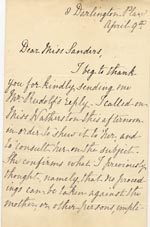 8 Darlington Place
April 9th
Dear Miss Sanders,
I beg to thank
you for kindly sending me
Mr Rudolf's reply. I called on
Miss Wilkerston this afternoon
in order to shew it to her and
to consult her on the subject.
She confirms what I previously
thought, namely, that no proceed
ings can be taken against the
mother, or other persons impli-